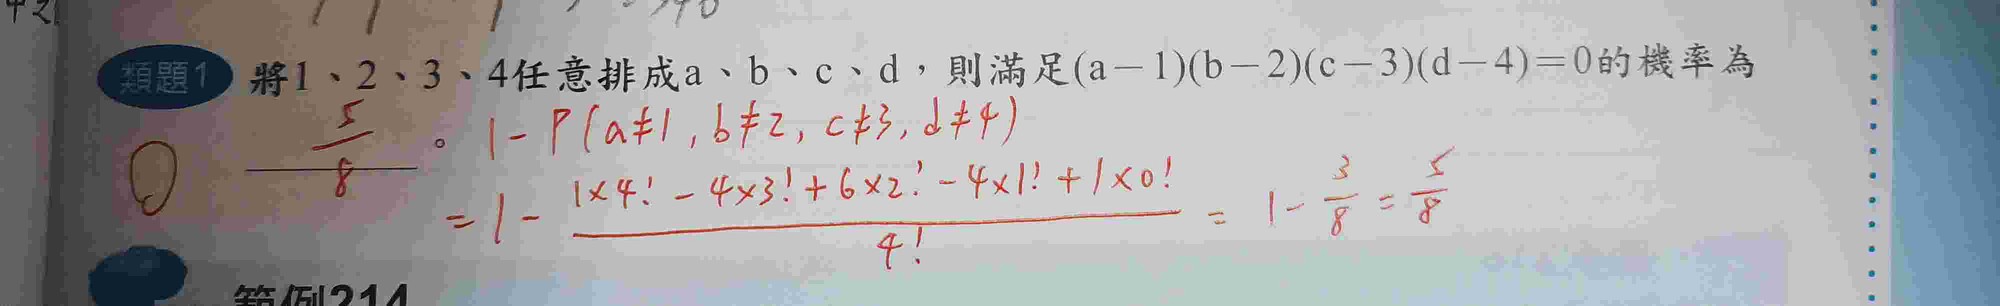 類題1 將1、2、3、4任意排成a、b、c、d，則滿足(a－1)(b－2)(c－3)(d－4)＝0的機率為
5/8 。 1-P(a≠1, b≠2, c≠3, d≠4)
= 1 - (1×4! - 4×3! + 6×2! - 4×1! + 1×0!)/4! = 1 - 3/8 = 5/8
範例214